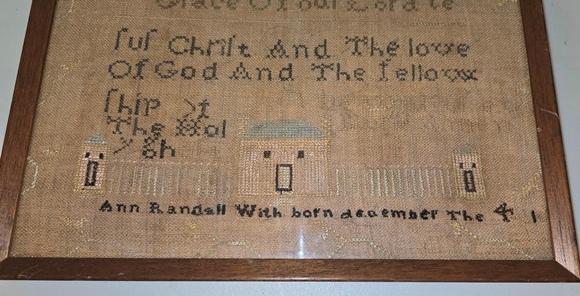 Grace Of our Lord Ie
ſuſ Chriſt And The love
Of God And The fellow
ſhip of
The Hol
y Gh
Ann Randall With born december The 4 1